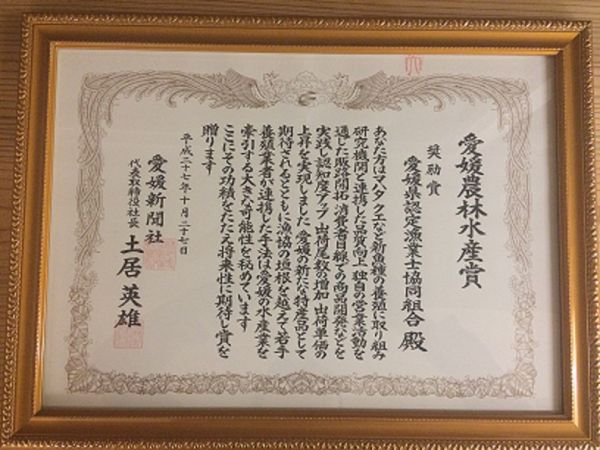 愛媛農林水産賞
奨励賞
愛媛県認定漁業士協同組合 殿
あなた方はスマ、クエなど新魚種の養殖に取り組み
研究機関と連携した品質向上 独自の営業活動を
通じた販路開拓 消費者目線での商品開発などを
実践し認知度アップ 出荷尾数の増加 出荷単価の
上昇を実現しました 愛媛の新たな特産品として
期待されるとともに漁協の垣根を越えて若手
養殖業者が連携した手法は愛媛の水産業を
牽引する大きな可能性を秘めています
ここにその功績をたたえ将来性に期待し賞を
贈ります
平成二十七年十月二十七日
愛媛新聞社
代表取締役社長 土居英雄